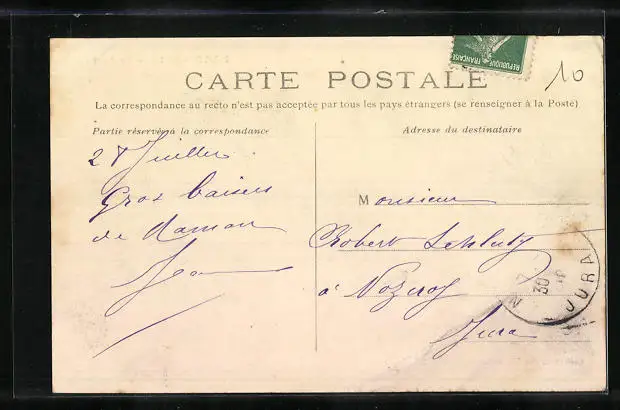 RÉPUBLIQUE FRANÇAISE
10
CARTE POSTALE
La correspondance au recto n'est pas acceptée par tous les pays étrangers (se renseigner à la Poste)
Partie réservée à la correspondance
28 Juillet
Gros baisers
de Maman
Jean
Adresse du destinataire
Monsieur
Robert
à Nozeroy
Jura
30
JURA